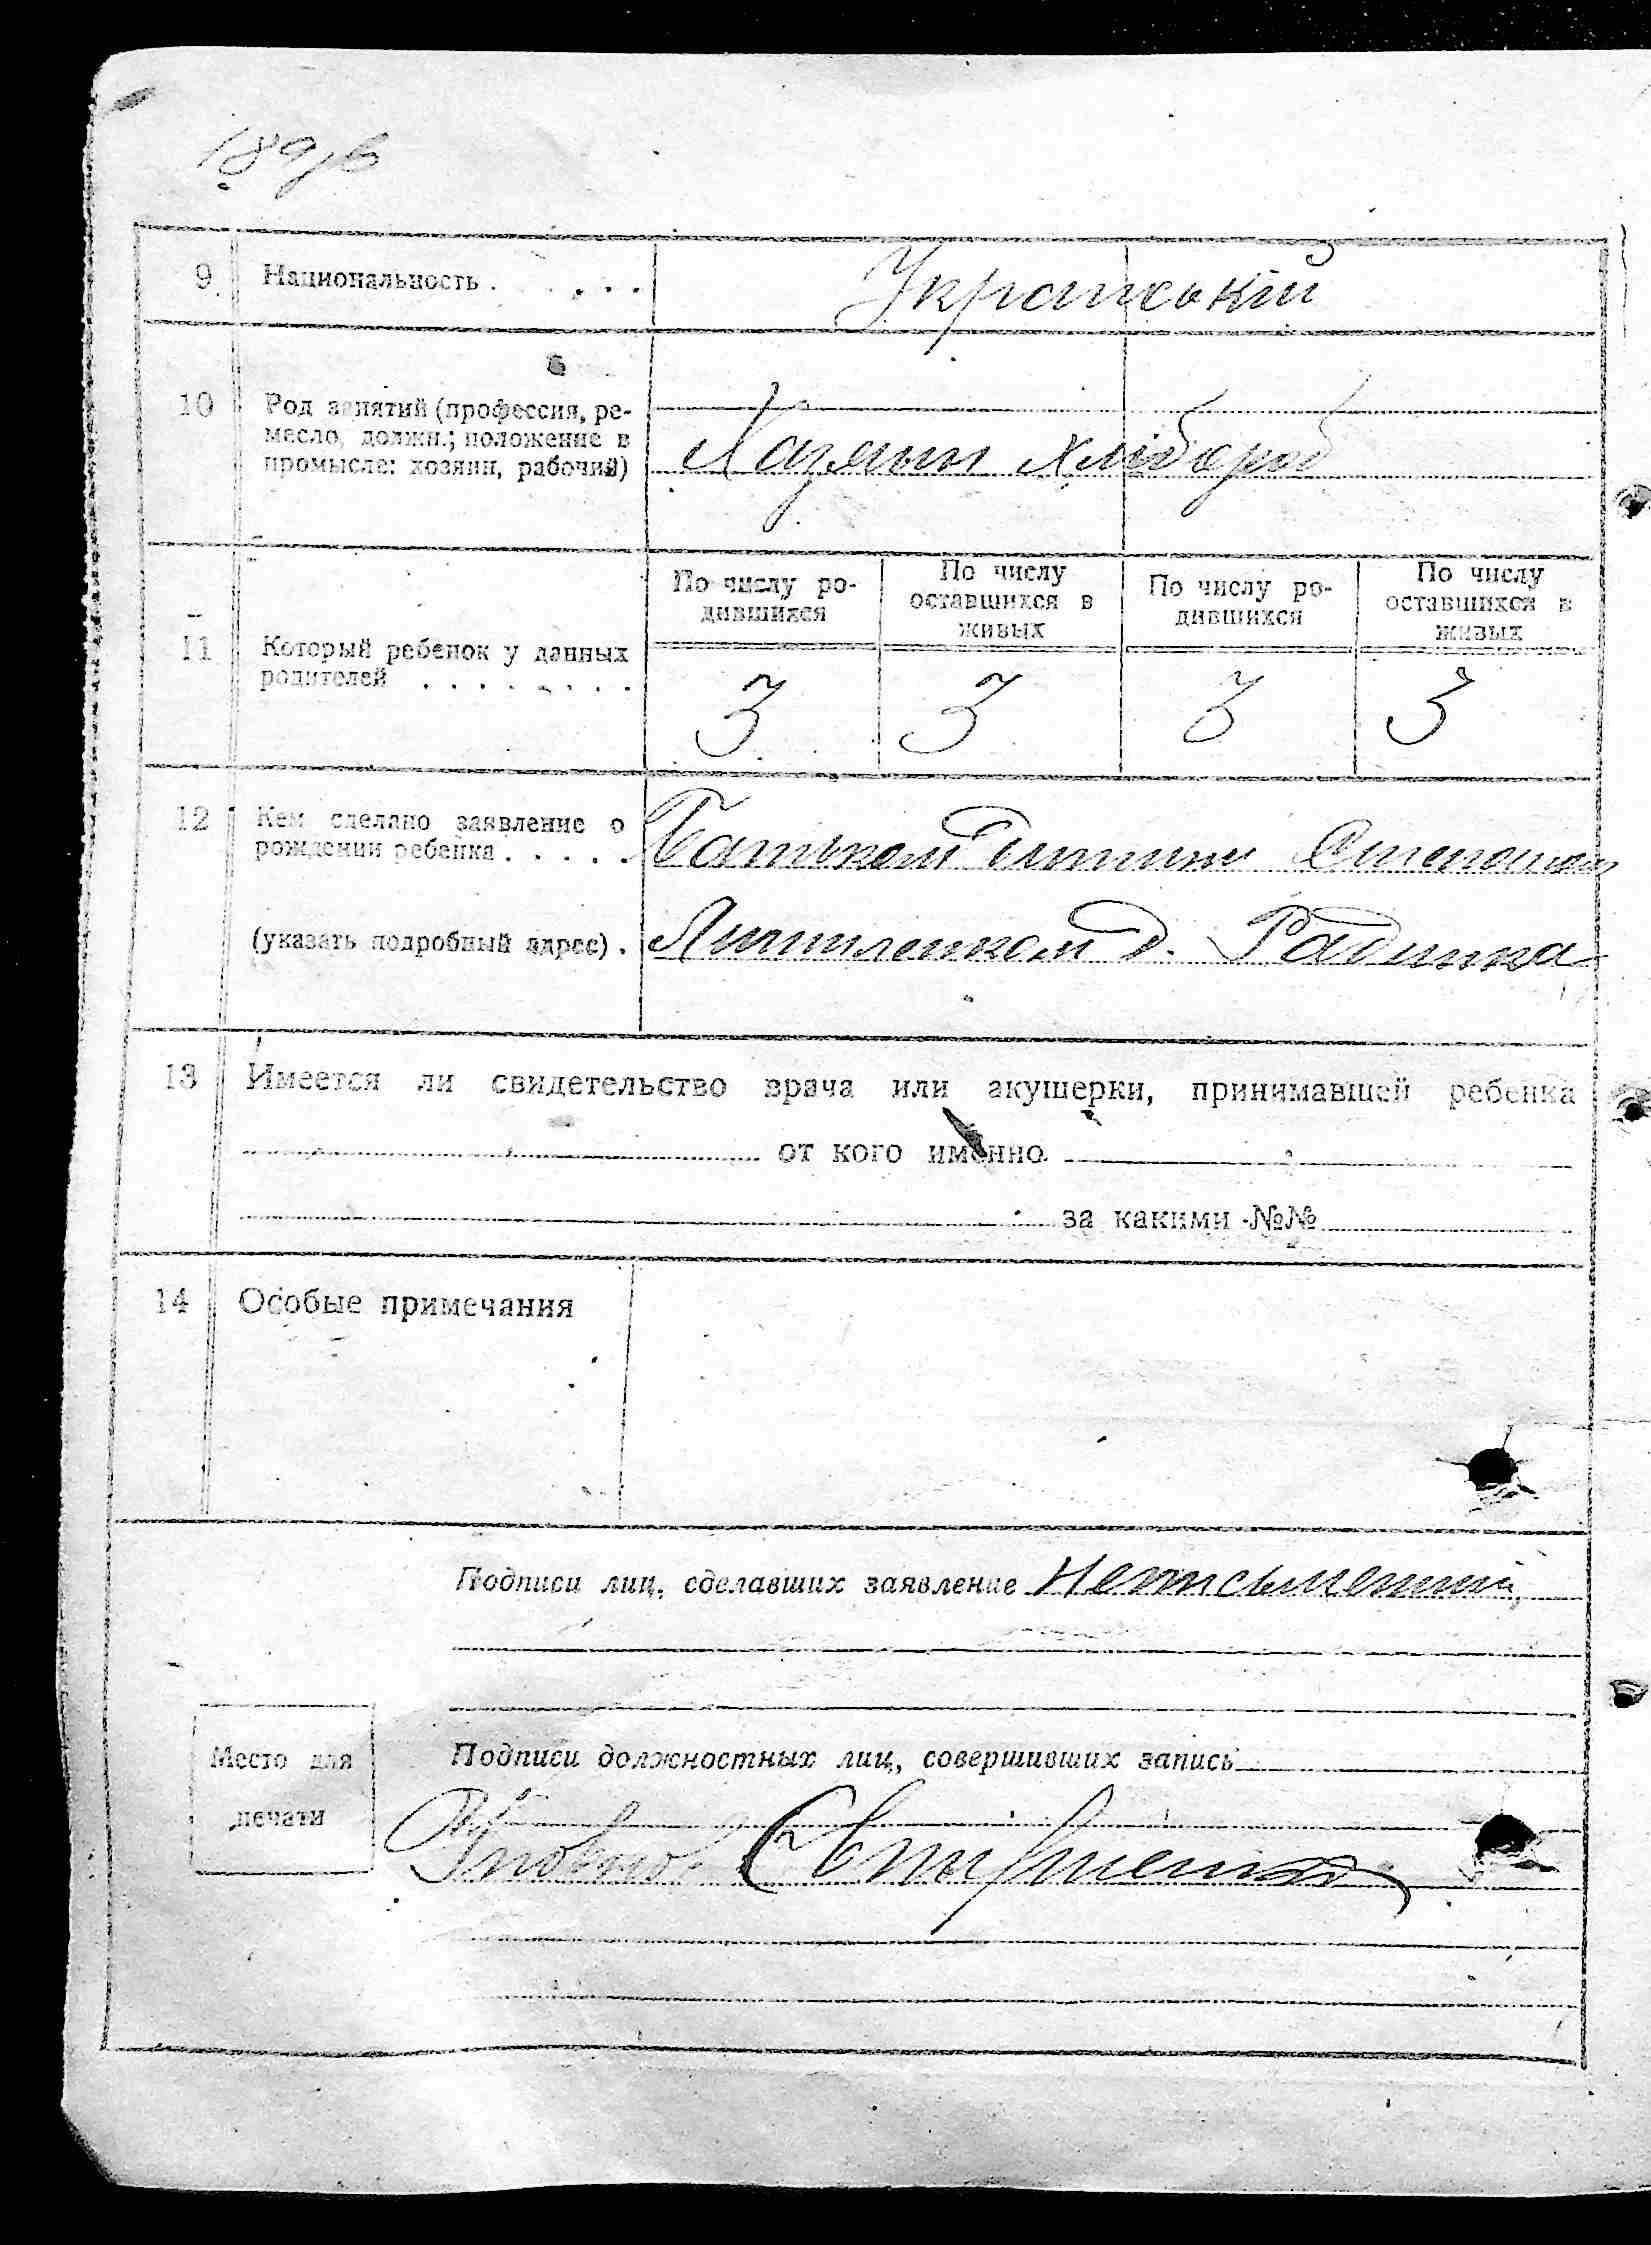 189/в
9 Национальность . . . . . Український
10 Род занятий (профессия, ре-
месло, должн.; положение в
промысле: хозяин, рабочий) Хазяин хлібороб
По числу ро-
дившихся
По числу
оставшихся в
живых
По числу ро-
дившихся
По числу
оставшихся в
живых
11 Который ребенок у данных
родителей . . . . . . . .
3 3 3 3
12 Кем сделано заявление о
рождении ребенка . . . . . Батьком Дитини
(указать подробный адрес) . д. Радинка
13 Имеется ли свидетельство врача или акушерки, принимавшей ребенка
от кого именно
за какими №№
14 Особые примечания
Подписи лиц, сделавших заявление Неписьменний,
Место для
печати
Подписи должностных лиц, совершивших запись